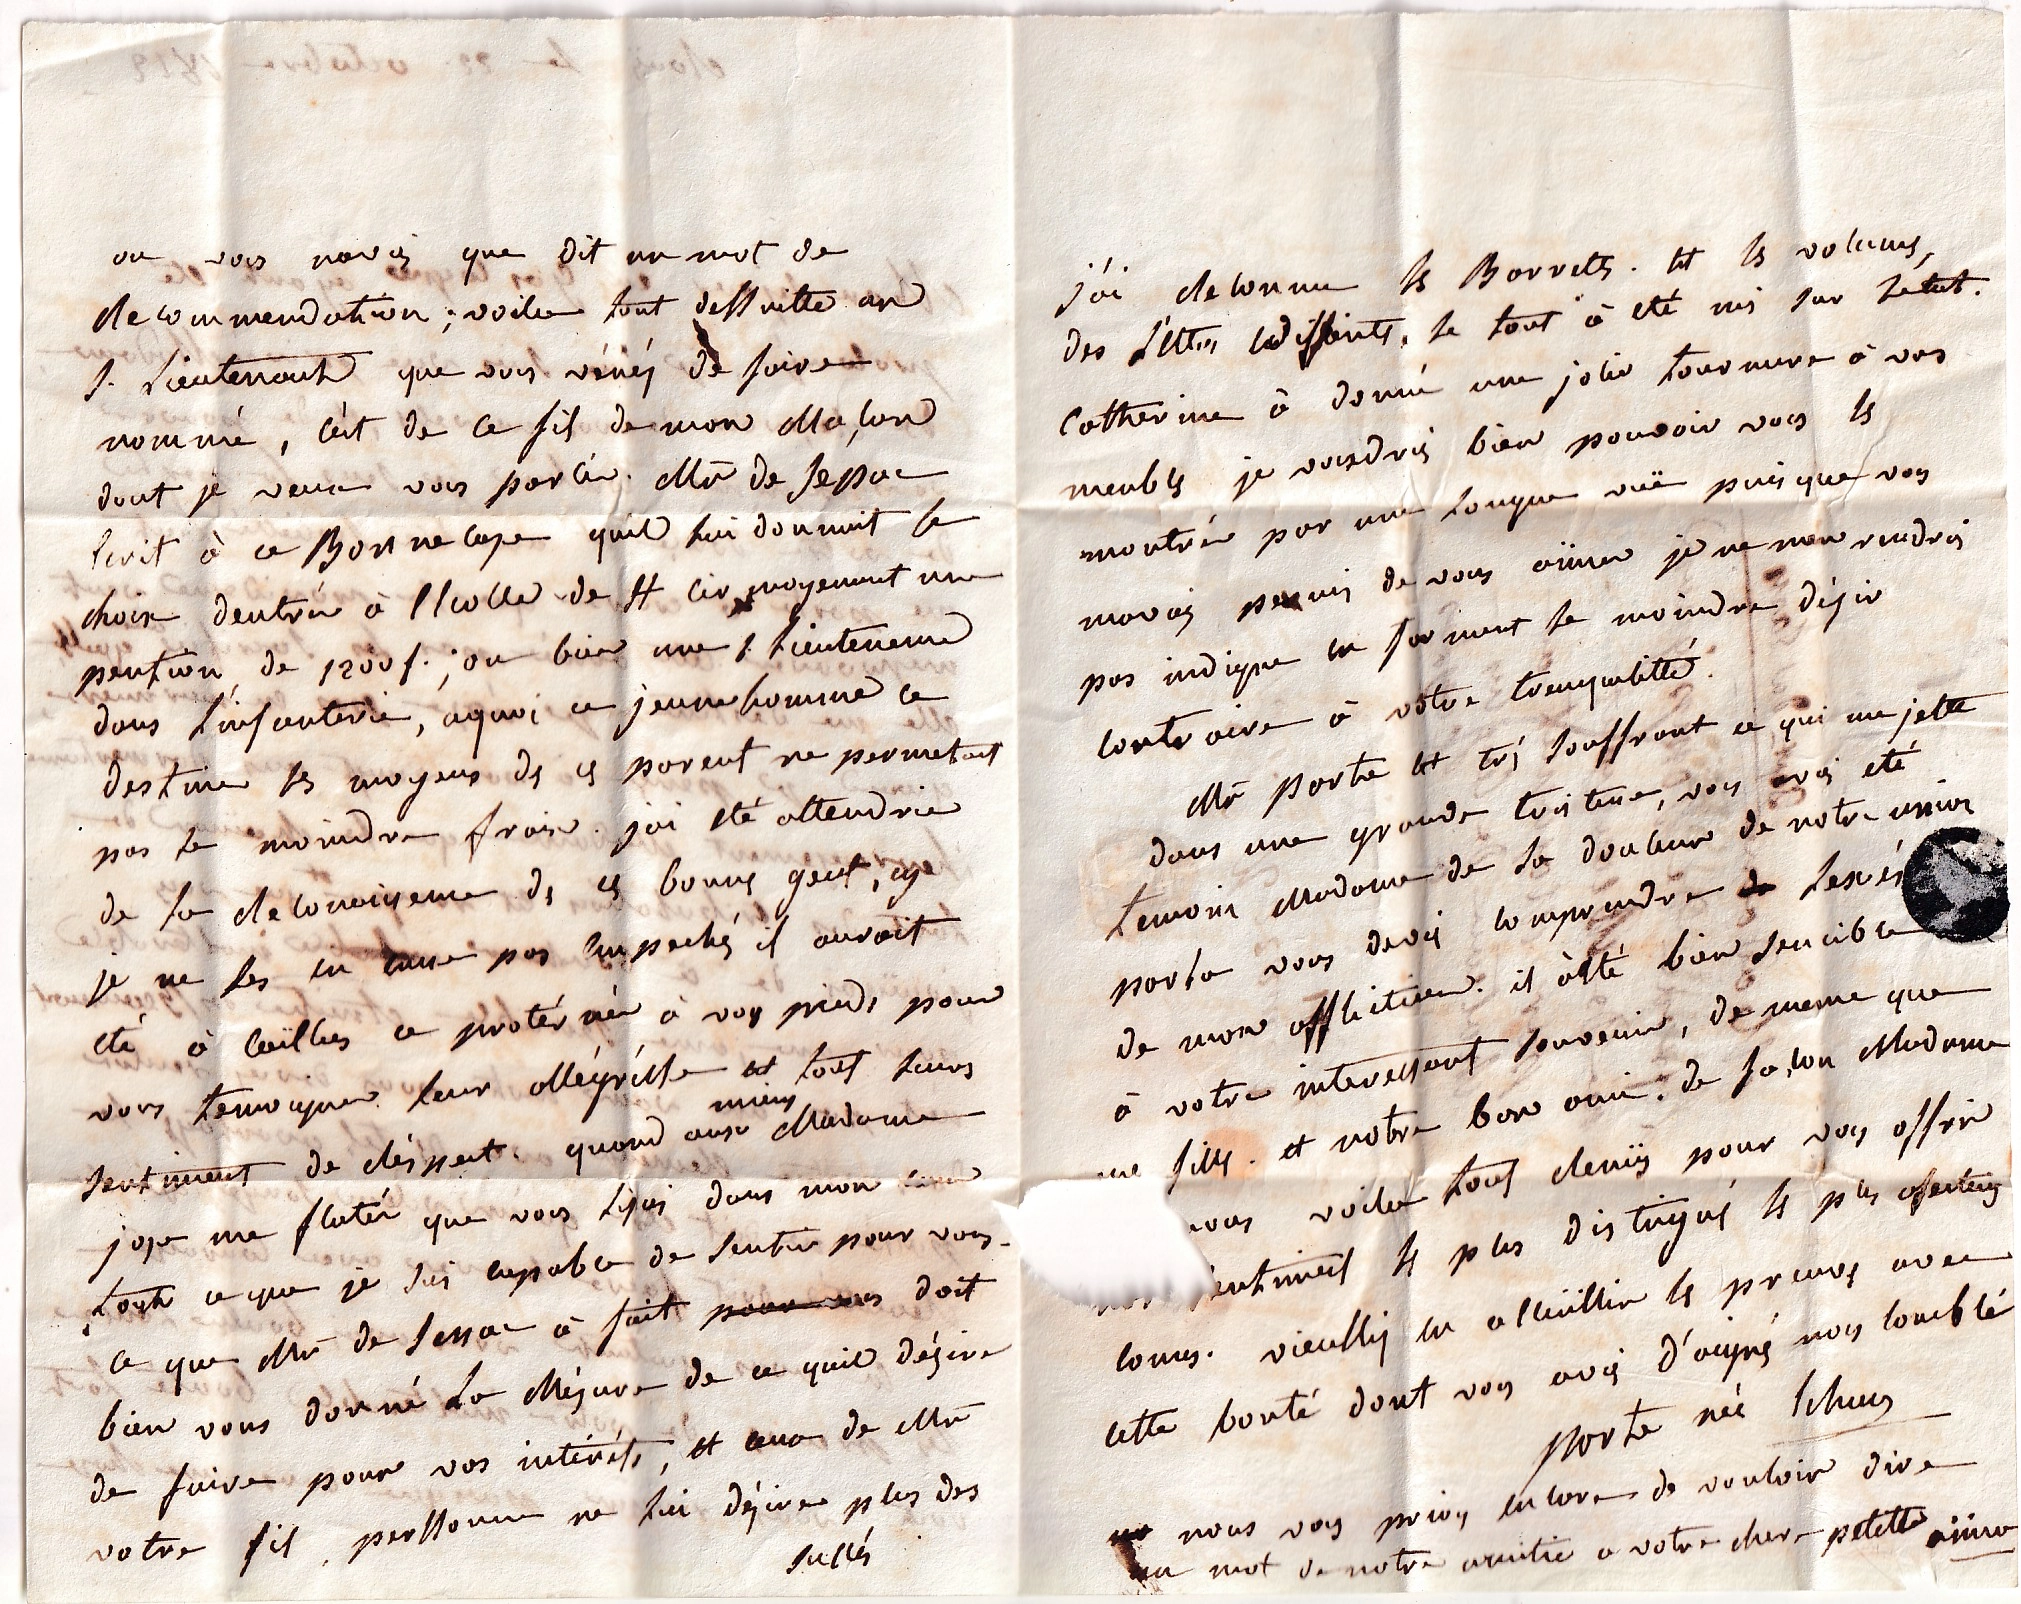 ou vous naviés que dit un mot de
recommendation ; voila tout dessuitte un
s. Lieutenant que vous vénés de faire
nommé, cest de ce fils de mon Maçon
dont je veux vous parlér. Mr de
écrit à ce quil lui donnoit le
choix dentrér à lécolle de st cir moyenent une
pention de 1200 f. ; ou bien une s. Lieutenence
dans l'infanterie, aquoi ce jeune homme ce
destine les moyens de ces parent ne permetant
pas le moindre frais. jai été attendrie
de la reconoissence de ces bonnes gent,
je ne les en eusse pas empechés il auroit
été à ce protérnér à vos pieds pour
vous temoigner leur allégrésse et tout leurs
sentiment de réspect. quand ausi Madame
mieux
jose me flatér que vous lisés dans mon cœur
tout ce que je suis capable de sentir pour vous.
ce que Mr de à fait pour vous doit
bien vous donné la Mésure de ce quil désire
de faire pour vos intéréts, et ceux de Mr
votre fils, perssonne ne lui désire plus des
succés
j'ai reconnu les et les volumes,
des l'ettres le tout à été mis sur l'état.
Catherine à donné une jolie tournure à vos
meubles je voudrois bien pouvoir vous les
montrér par une longue vuë puisque vous
mavés permis de vous aimer je ne men rendrois
pas indigne en formant le moindre désir
contraire à vôtre trenquilitté.
Mr Porte est trés souffrant ce qui me jette
dans une grande tristesse, vous avés été
temoin Madame de la douleur de notre union
par la vous devés comprendre de
de mon affliction. il à été bien sencible
à votre interessant souvenir, de meme que
me filles. et notre bon ami. de façon Madame
nous voila tous reunis pour vous offrir
sentiments les plus distingués les plus afectueux
connus. vieullés en accuëillir les preuves avec
cette bonté dont vous avés d'aignés nous comblé
Porte née
nous vous prions encore de vouloir dire
un mot de notre amitié a votre chere petitte